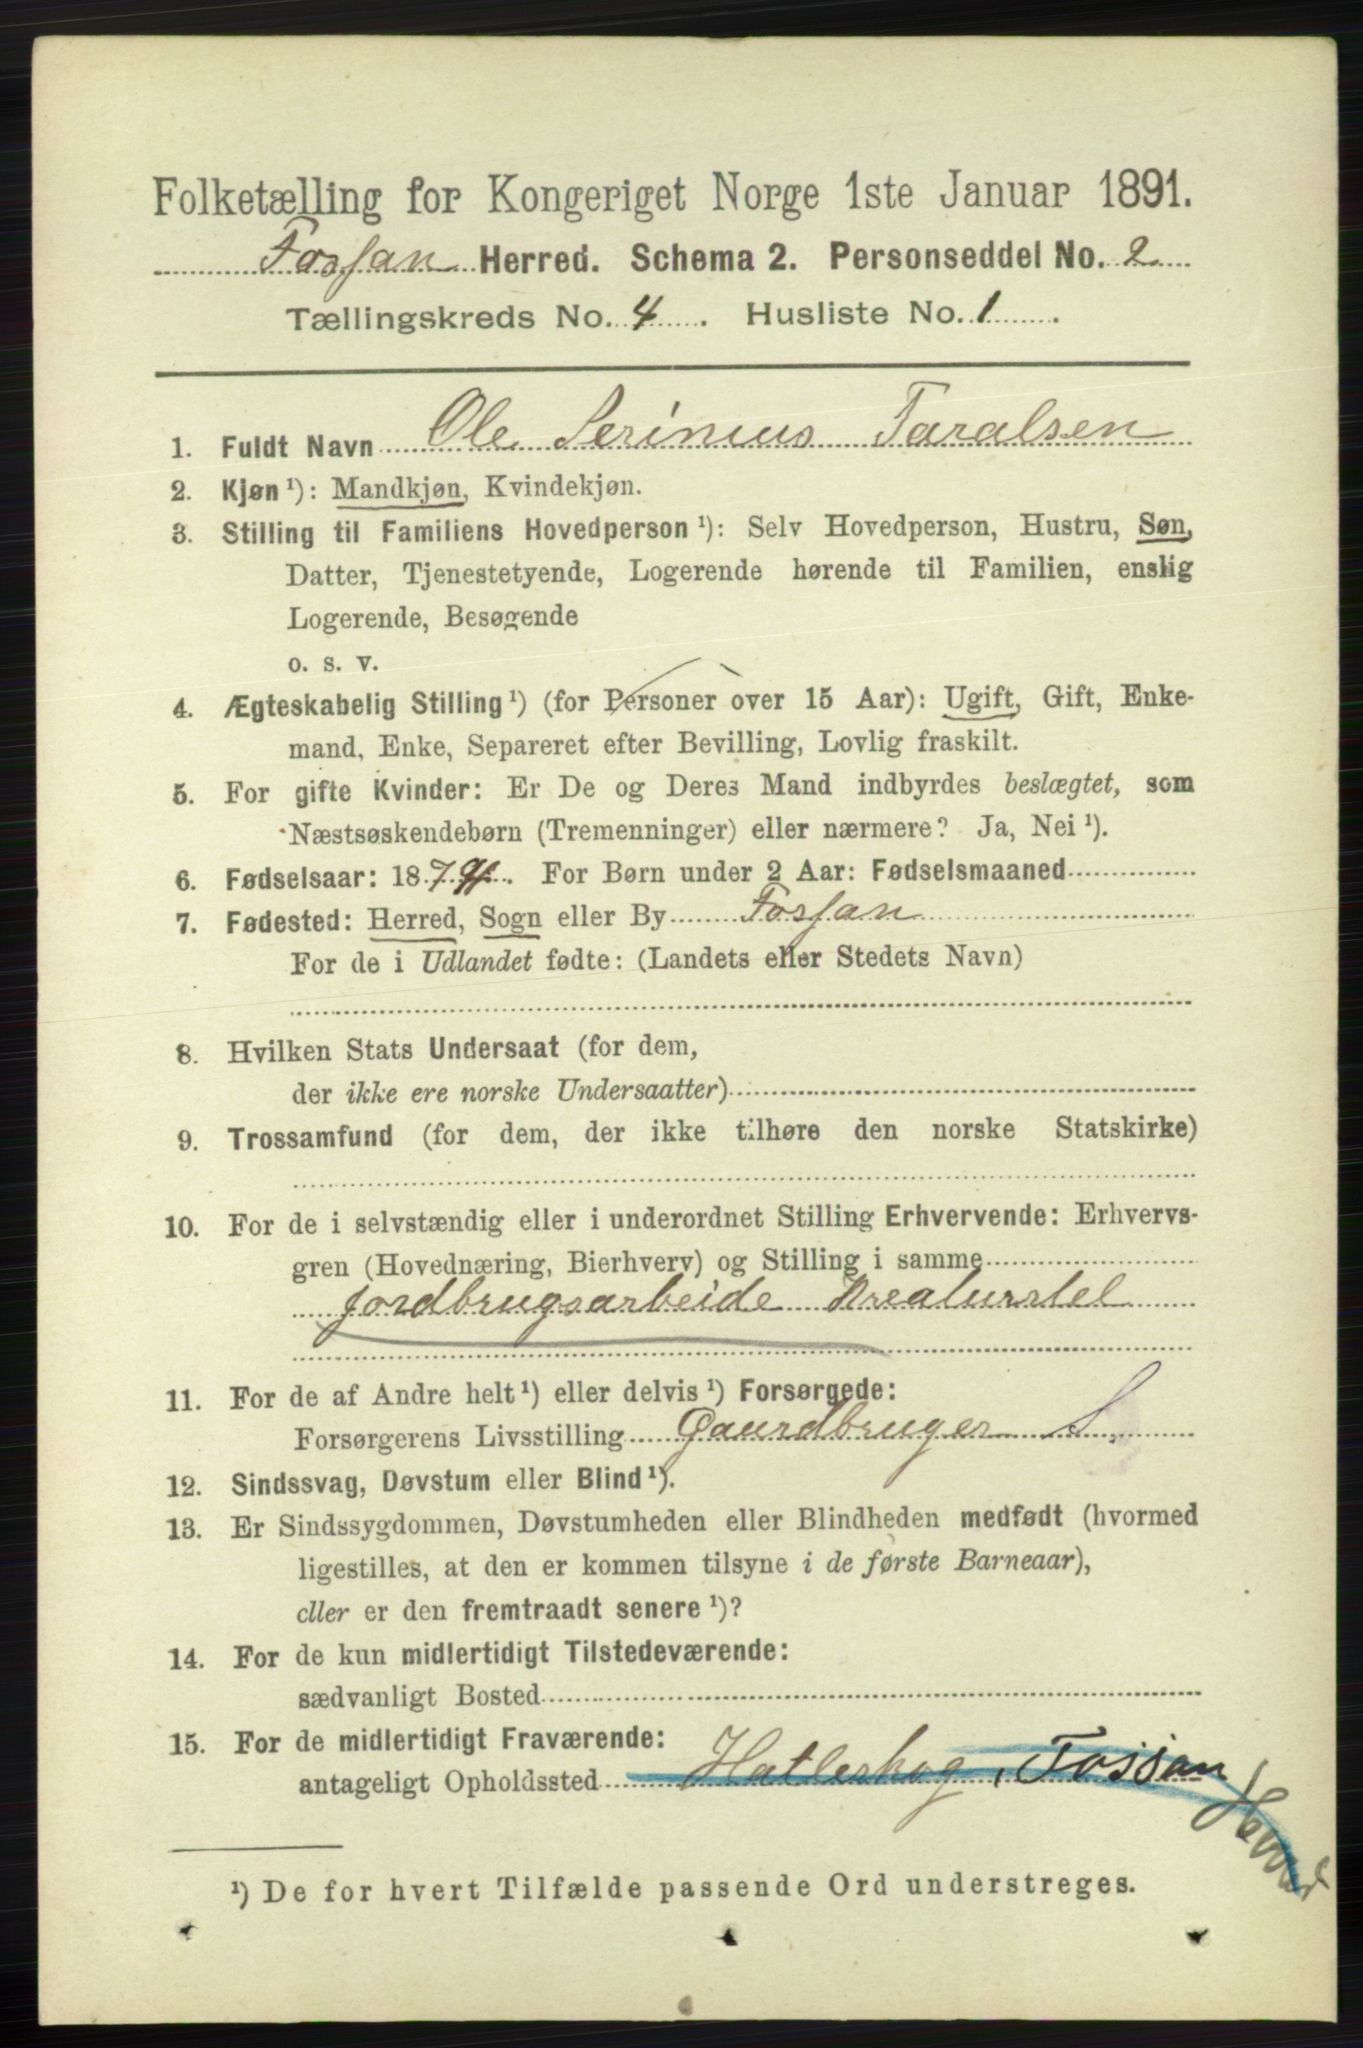 Folketælling for Kongeriget Norge 1ste Januar 1891.
Fossan Herred. Schema 2. Personseddel No. 2
Tællingskreds No. 4. Husliste No. 1.
1. Fuldt Navn Ole Serinius Taralsen
2. Kjøn ¹): Mandkjøn, Kvindekjøn.
3. Stilling til Familiens Hovedperson ¹): Selv Hovedperson, Hustru, Søn,
Datter, Tjenestetyende, Logerende hørende til Familien, enslig
Logerende, Besøgende
o. s. v.
4. Ægteskabelig Stilling ¹) (for Personer over 15 Aar): Ugift, Gift, Enke-
mand, Enke, Separeret efter Bevilling, Lovlig fraskilt.
5. For gifte Kvinder: Er De og Deres Mand indbyrdes beslægtet, som
Næstsøskendebørn (Tremenninger) eller nærmere? Ja, Nei ¹).
6. Fødselsaar: 187 . For Børn under 2 Aar: Fødselsmaaned
7. Fødested: Herred, Sogn eller By Fossan
For de i Udlandet fødte: (Landets eller Stedets Navn)
8. Hvilken Stats Undersaat (for dem,
der ikke ere norske Undersaatter)
9. Trossamfund (for dem, der ikke tilhøre den norske Statskirke)
10. For de i selvstændig eller i underordnet Stilling Erhvervende: Erhvervs-
gren (Hovednæring, Bierhverv) og Stilling i samme
Jordbrugsarbeide Kreaturstel
11. For de af Andre helt ¹) eller delvis ¹) Forsørgede:
Forsørgerens Livsstilling Gaardbruger S
12. Sindssvag, Døvstum eller Blind ¹).
13. Er Sindssygdommen, Døvstumheden eller Blindheden medfødt (hvormed
ligestilles, at den er kommen tilsyne i de første Barneaar),
eller er den fremtraadt senere ¹)?
14. For de kun midlertidigt Tilstedeværende:
sædvanligt Bosted
15. For de midlertidigt Fraværende:
antageligt Opholdssted Hatleskog, Fossan
Herred
¹) De for hvert Tilfælde passende Ord understreges.